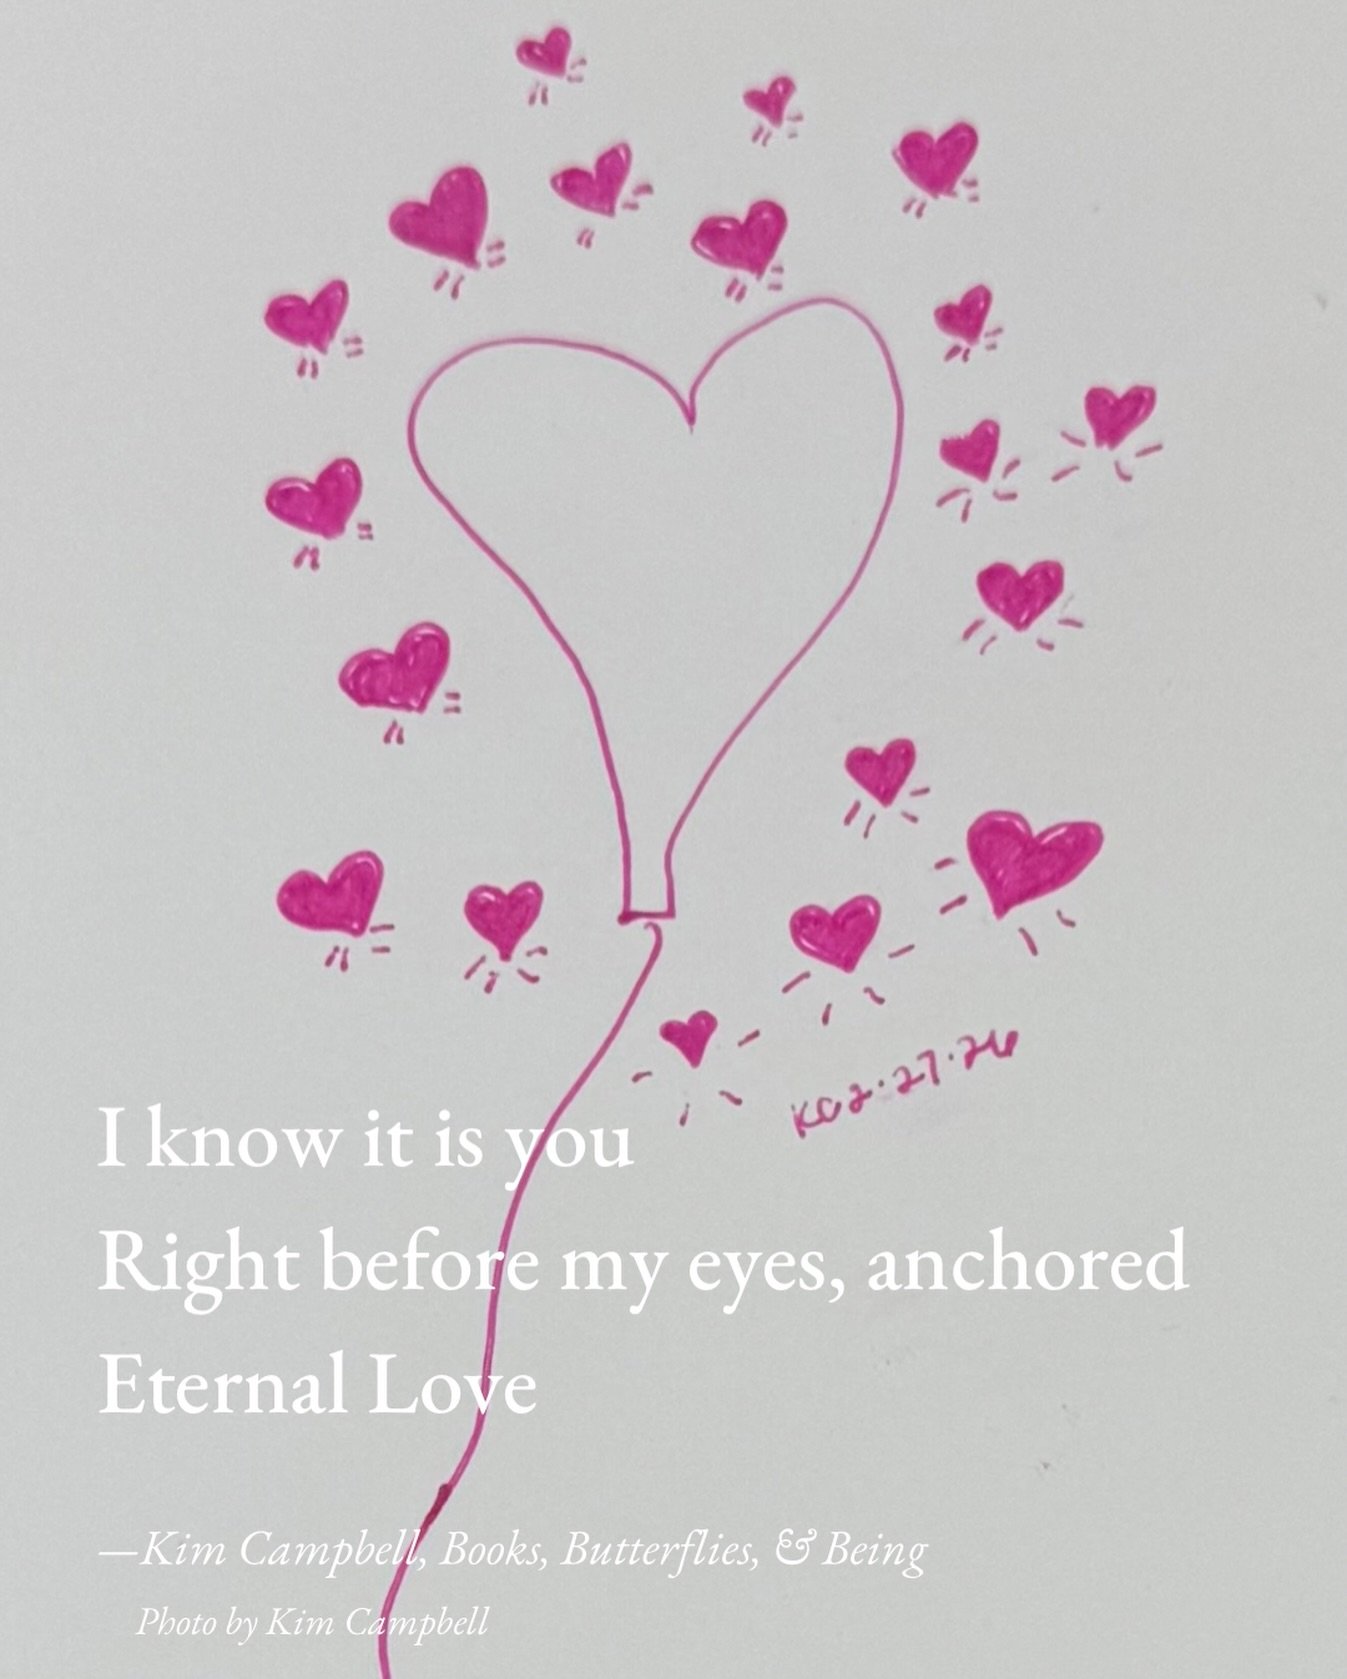 KC 2.27.26
I know it is you
Right before my eyes, anchored
Eternal Love
—Kim Campbell, Books, Butterflies, & Being
Photo by Kim Campbell